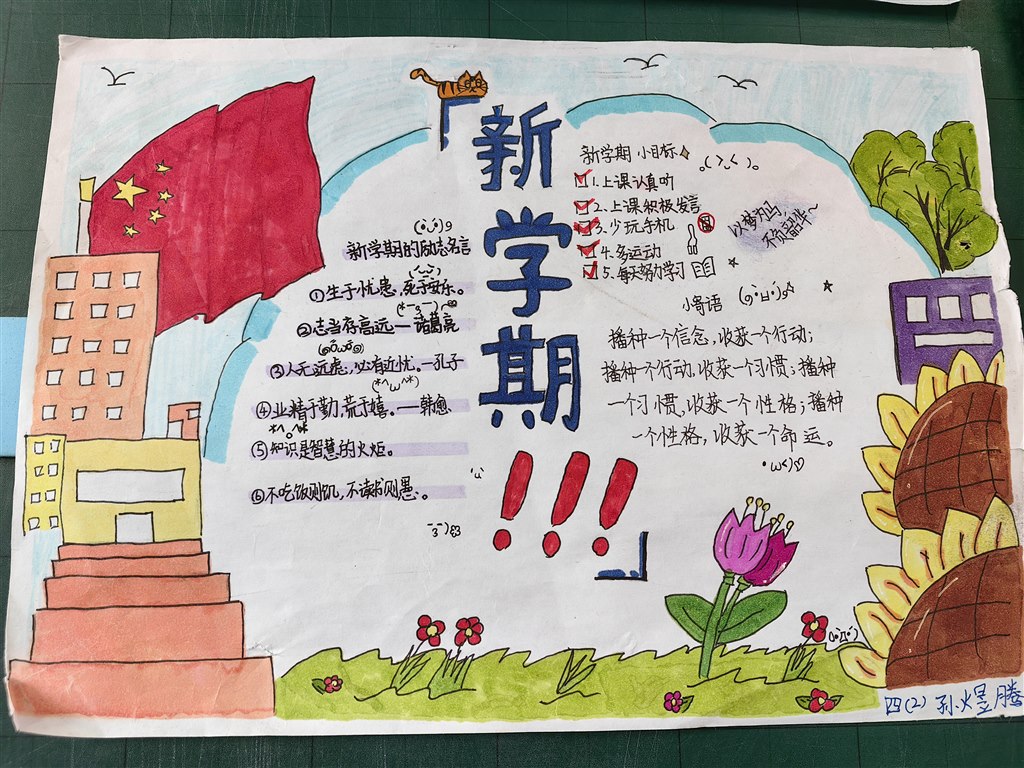 「新学期!!!」
新学期的励志名言
①生于忧患,死于安乐。
②志当存高远——诸葛亮
③人无远虑,必有近忧。—孔子
④业精于勤,荒于嬉。——韩愈
⑤知识是智慧的火炬。
⑥不吃饭则饥,不读书则愚。
新学期 小目标
1.上课认真听
2.上课积极发言
3.少玩手机
4.多运动
5.每天努力学习
以梦为马
不负韶华~
小寄语
播种一个信念,收获一个行动;
播种一个行动,收获一个习惯;播种
一个习惯,收获一个性格;播种
一个性格,收获一个命运。
四(2) 孙煜腾